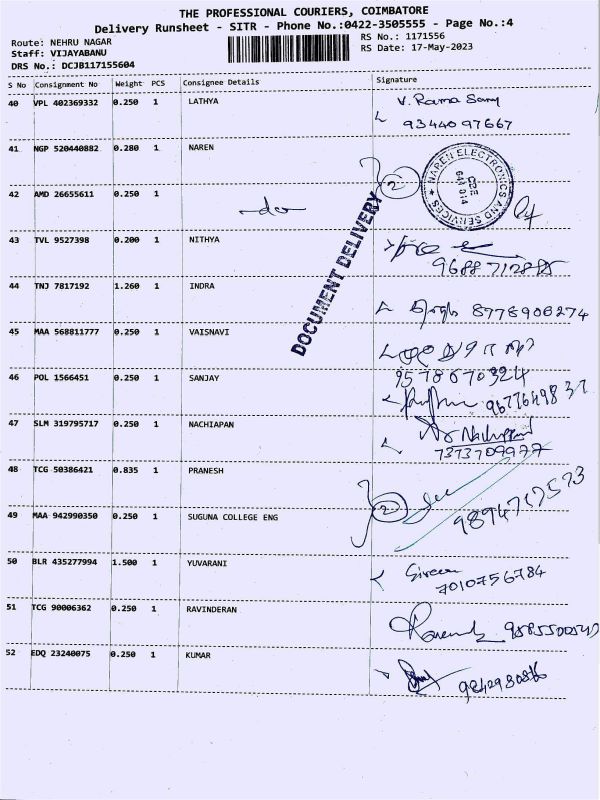 THE PROFESSIONAL COURIERS, COIMBATORE
Delivery Runsheet - SITR - Phone No.:0422-3505555 - Page No.:4
Route: NEHRU NAGAR
Staff: VIJAYABANU
DRS No.: DCJB117155604
RS No.: 1171556
RS Date: 17-May-2023
S No Consignment No Weight PCS Consignee Details Signature
40 VPL 402369332 0.250 1 LATHYA V. Rama Samy
9344097667
41 NGP 520440882 0.280 1 NAREN
2
NAREN ELECTRONICS AND SERVICES
CBE
641 014
42 AMD 26655611 0.250 1
-do-
DOCUMENT DELIVERY
43 TVL 9527398 0.200 1 NITHYA
44 TNJ 7817192 1.260 1 INDRA 8778908274
45 MAA 568811777 0.250 1 VAISNAVI
9578670324
46 POL 1566451 0.250 1 SANJAY
47 SLM 319795717 0.250 1 NACHIAPAN
7373709977
48 TCG 50386421 0.835 1 PRANESH
2
49 MAA 942990350 0.250 1 SUGUNA COLLEGE ENG
50 BLR 435277994 1.500 1 YUVARANI
7010756784
51 TCG 90006362 0.250 1 RAVINDERAN
52 EDQ 23240075 0.250 1 KUMAR